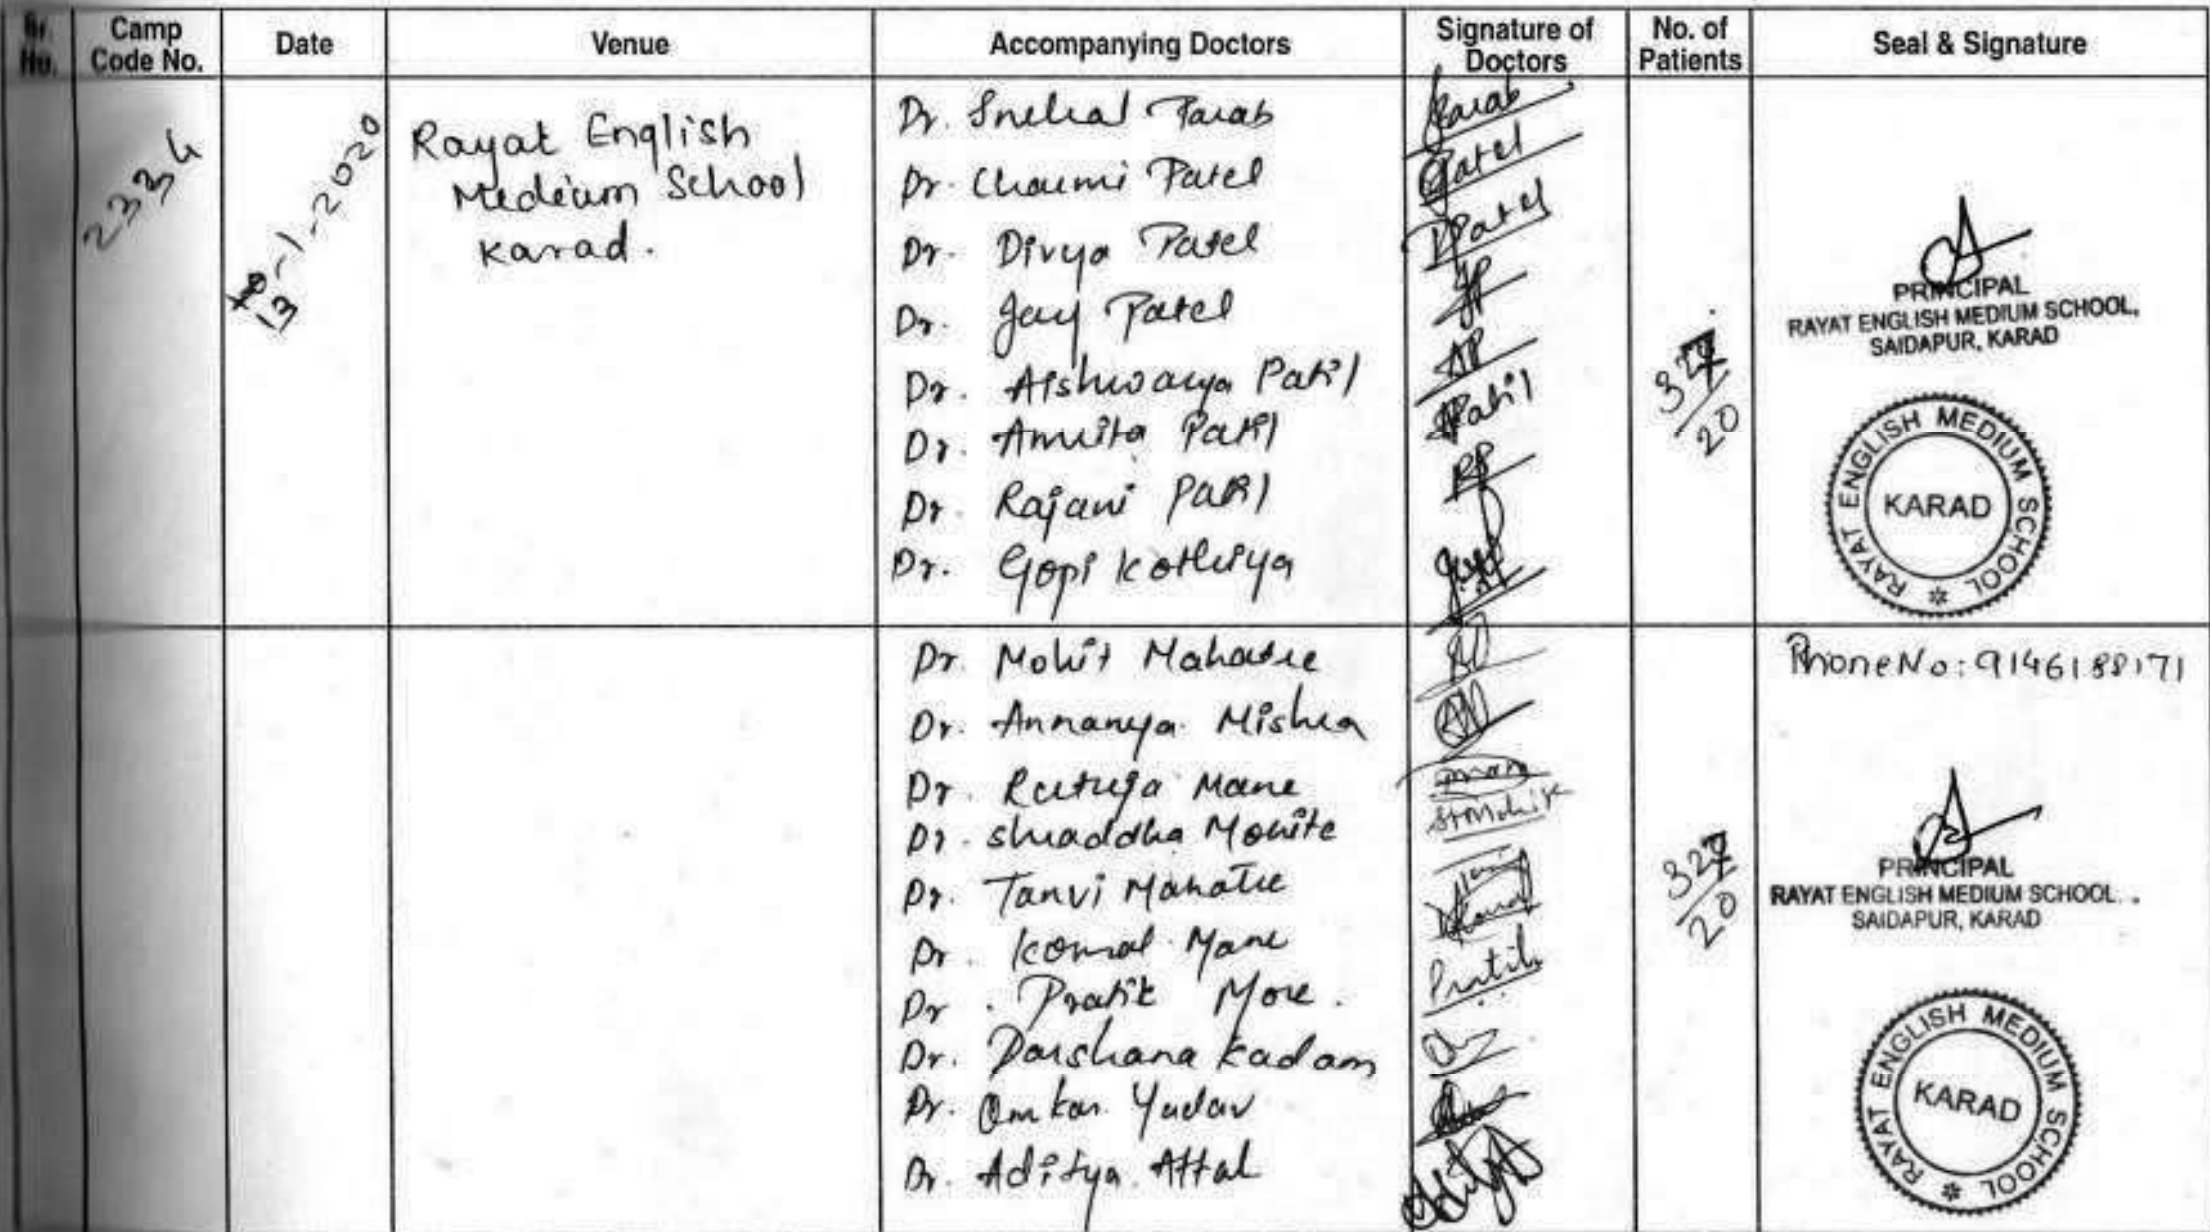 Sr. No.
Camp Code No.
Date
Venue
Accompanying Doctors
Signature of Doctors
No. of Patients
Seal & Signature
2334
13-1-2020
Rayat English
Medium School
Karad.
Dr. Snehal Parab
Dr. Charmi Patel
Dr. Divya Patel
Dr. Jay Patel
Dr. Aishwarya Patil
Dr. Amrita Patil
Dr. Rajani Patil
Dr. Gopi Kothiya
Parab
Patel
DPatel
JP
AP
APatil
RP
327
20
PRINCIPAL
RAYAT ENGLISH MEDIUM SCHOOL,
SAIDAPUR, KARAD
RAYAT ENGLISH MEDIUM SCHOOL *
KARAD
Dr. Mohit Mahatre
Dr. Annanya Mishra
Dr. Rutuja Mane
Dr. Shraddha Mohite
Dr. Tanvi Mahatre
Dr. Komal Mane
Dr. Pratik More.
Dr. Darshana Kadam
Dr. Omkar Yadav
Dr. Aditya Attal
Pratik
327
20
Phone No: 9146188171
PRINCIPAL
RAYAT ENGLISH MEDIUM SCHOOL
SAIDAPUR, KARAD
RAYAT ENGLISH MEDIUM SCHOOL *
KARAD